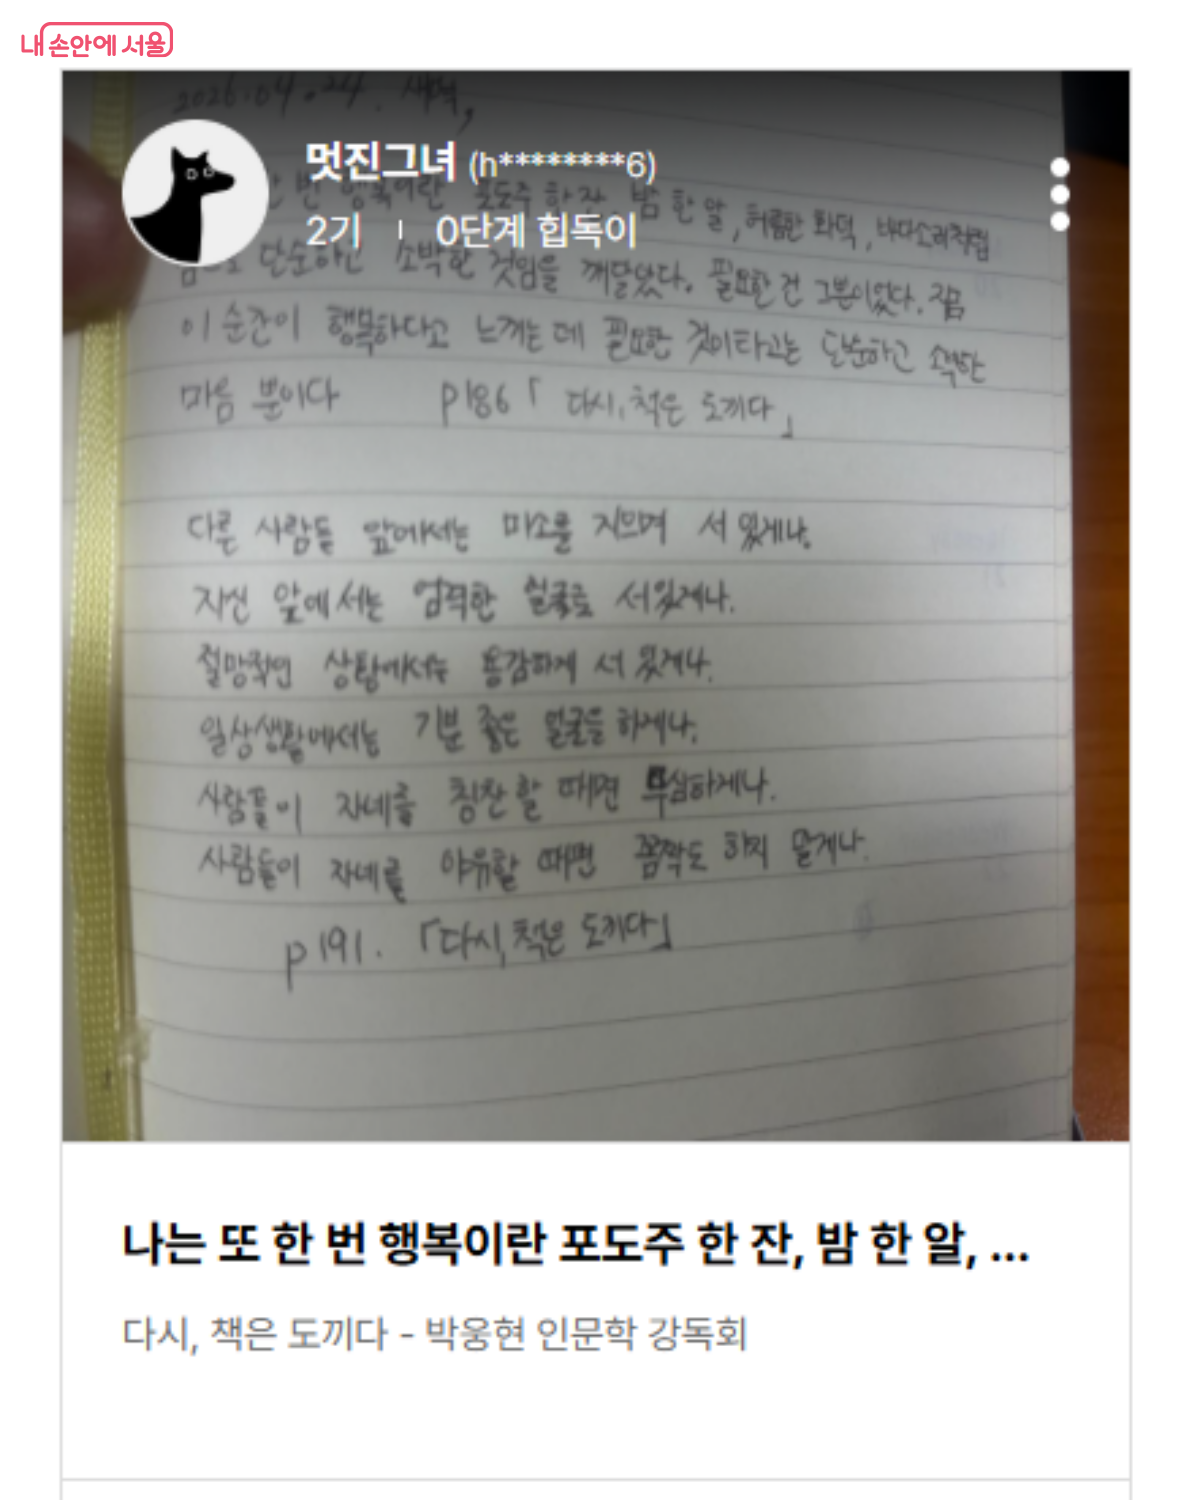 내 손안에 서울
2026.04.24. 새벽,
멋진그녀 (h********6)
한 번 행복이란 포도주 한 잔, 밤 한 알, 허름한 화덕, 바다소리처럼
2기 | 0단계 힙독이
단순하고 소박한 것임을 깨달았다. 필요한 건 그뿐이었다. 지금
이 순간이 행복하다고 느끼는 데 필요한 것이라고는 단순하고 소박한
마음 뿐이다 p186 「다시, 책은 도끼다」
다른 사람들 앞에서는 미소를 지으며 서 있게나.
자신 앞에서는 엄격한 얼굴로 서있게나.
절망적인 상황에서는 용감하게 서 있게나.
일상생활에서는 기분 좋은 얼굴을 하게나.
사람들이 자네를 칭찬할 때면 무심하게나.
사람들이 자네를 야유할 때면 꼼짝도 하지 말게나.
p191. 「다시, 책은 도끼다」
나는 또 한 번 행복이란 포도주 한 잔, 밤 한 알, ...
다시, 책은 도끼다 - 박웅현 인문학 강독회